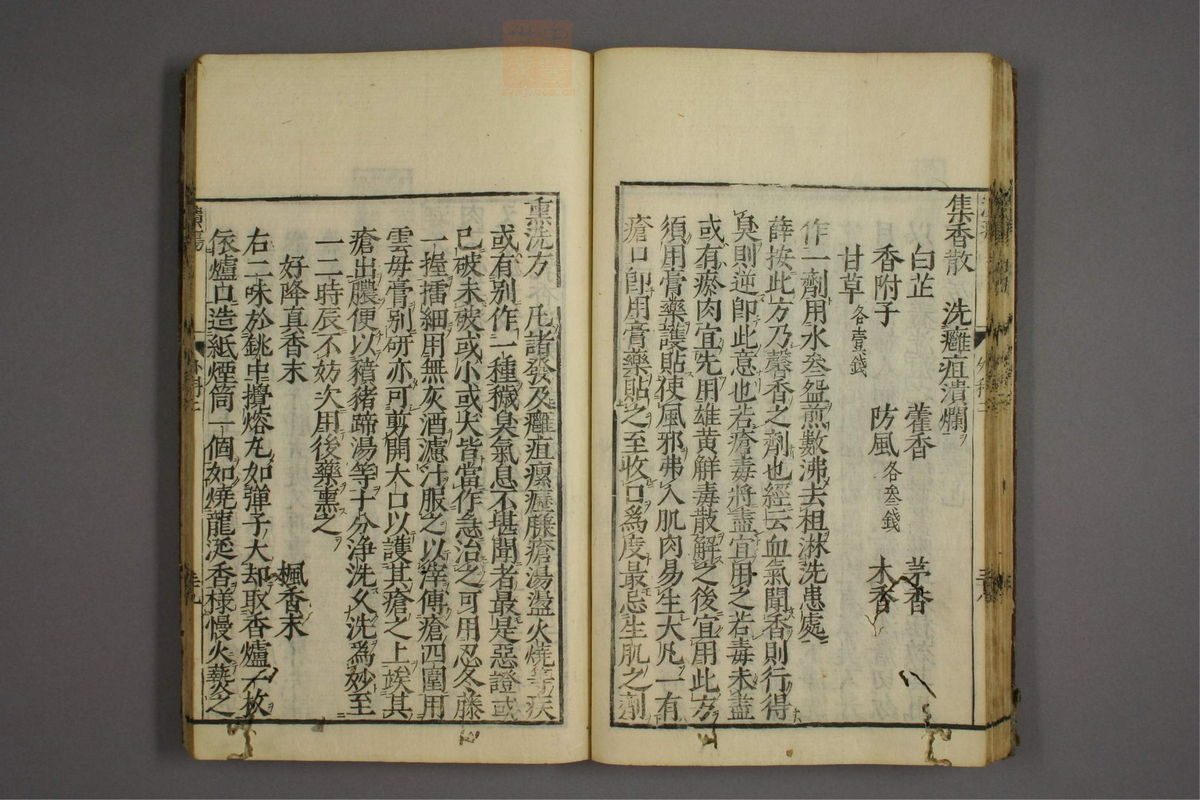 集香散　洗癰疽潰爛
白芷　藿香　茅香
香附子　防風各叁錢　木香
甘草各壹錢
作一劑用水叁盌煎數沸去柤淋洗患處
薛按此方乃馨香之劑也經云血氣聞香則行得
臭則逆卽此意也若瘡毒將盡宜用之若毒未盡
或有瘀肉宜先用雄黃解毒散解之後宜用此方
須用膏藥護貼使風邪弗入肌肉易生大凡一有
瘡口卽用膏藥貼之至收口爲度最忌生肌之劑
熏洗方　凡諸發及癰疽瘰癧臁瘡湯盪火燒等疾
或有别作一種穢臭氣息不堪聞者最是惡證或
已破未破或小或大皆當作急治之可用忍冬藤
一握擂細用無灰酒濾汁服之以滓傅瘡四圍用
雲母膏别研亦可剪開大口以護其瘡之上俟其
瘡出膿便以豶豬蹄湯等十分淨洗久洗爲妙至
一二時辰不妨次用後藥熏之
好降真香末　楓香末
右二味於銚中攪熔丸如彈子大却取香爐一枚
依爐口造紙煙筒一個如燒龍涎香樣慢火爇之